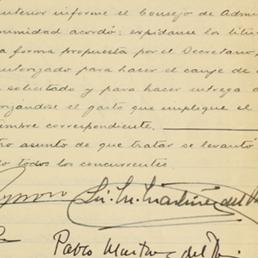 anterior informe el Consejo de Admi
unanimidad acordó; expídanse los títu
a forma propuesta por el Decretano,
autorizado para hacer el canje de
solicitado y para hacer entrega d
orizándose el gasto que implique el
imbre correspondiente.
tro asunto de que tratar se levantó
todos los concurrentes
Pablo Martínez del Río